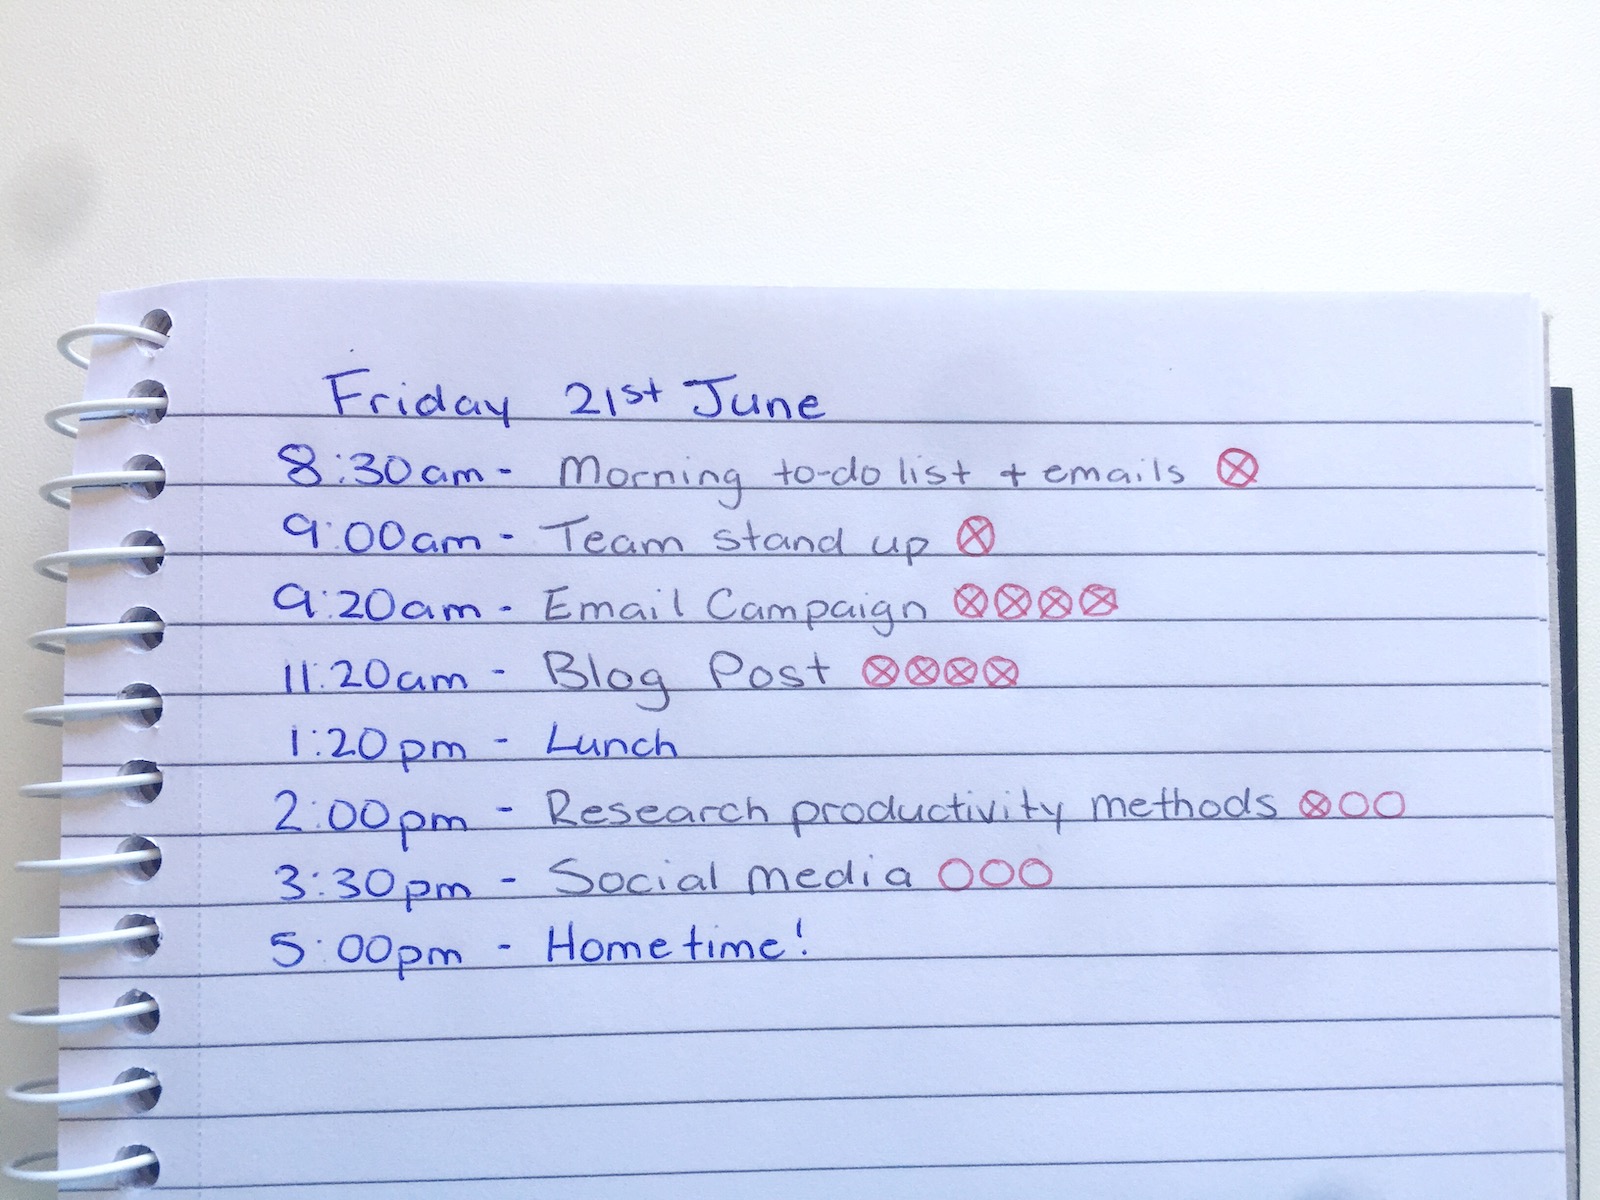 Friday 21st June
8:30am - Morning to-do list + emails ⊗
9:00am - Team stand up ⊗
9:20am - Email Campaign ⊗⊗⊗⊗
11:20am - Blog Post ⊗⊗⊗⊗
1:20pm - Lunch
2:00pm - Research productivity methods ⊗○○
3:30pm - Social media ○○○
5:00pm - Home time!